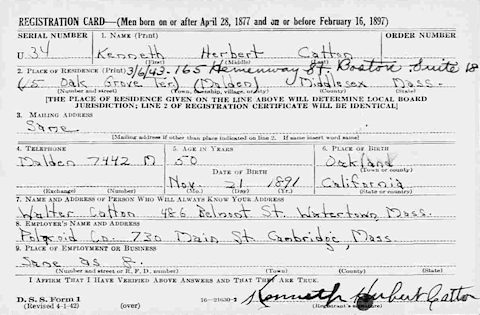 REGISTRATION CARD—(Men born on or after April 28, 1877 and on or before February 16, 1897)
SERIAL NUMBER 1. NAME (Print) ORDER NUMBER
U 34 Kenneth Herbert Cotton
(First) (Middle) (Last)
2. PLACE OF RESIDENCE (Print) 3/6/43. 165 Hemenway St Boston. Suite 18
(15 Oak Grove Ter) (Malden) Middlesex Mass.
(Number and street) (Town, township, village, or city) (County) (State)
[THE PLACE OF RESIDENCE GIVEN ON THE LINE ABOVE WILL DETERMINE LOCAL BOARD
JURISDICTION; LINE 2 OF REGISTRATION CERTIFICATE WILL BE IDENTICAL]
3. MAILING ADDRESS
Same
[Mailing address if other than place indicated on line 2. If same insert word same]
4. TELEPHONE 5. AGE IN YEARS 6. PLACE OF BIRTH
Malden 7442 M 50 Oakland
DATE OF BIRTH (Town or county)
Nov. 21 1891 California
(Exchange) (Number) (Mo.) (Day) (Yr.) (State or country)
7. NAME AND ADDRESS OF PERSON WHO WILL ALWAYS KNOW YOUR ADDRESS
Walter Cotton 486 Belmont St. Watertown Mass.
8. EMPLOYER'S NAME AND ADDRESS
Polaroid Co. 730 Main St. Cambridge, Mass
9. PLACE OF EMPLOYMENT OR BUSINESS
Same as 8.
(Number and street or R. F. D. number) (Town) (County) (State)
I AFFIRM THAT I HAVE VERIFIED ABOVE ANSWERS AND THAT THEY ARE TRUE.
D. S. S. Form 1
(Revised 4-1-42) (over) 16—21630-2 Kenneth Herbert Cotton
(Registrant's signature)